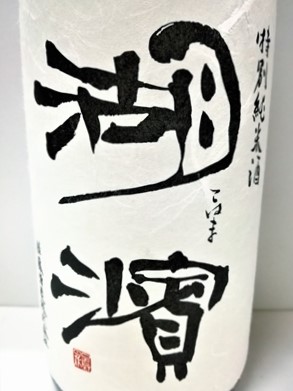 特別純米酒
こはま
湖濱